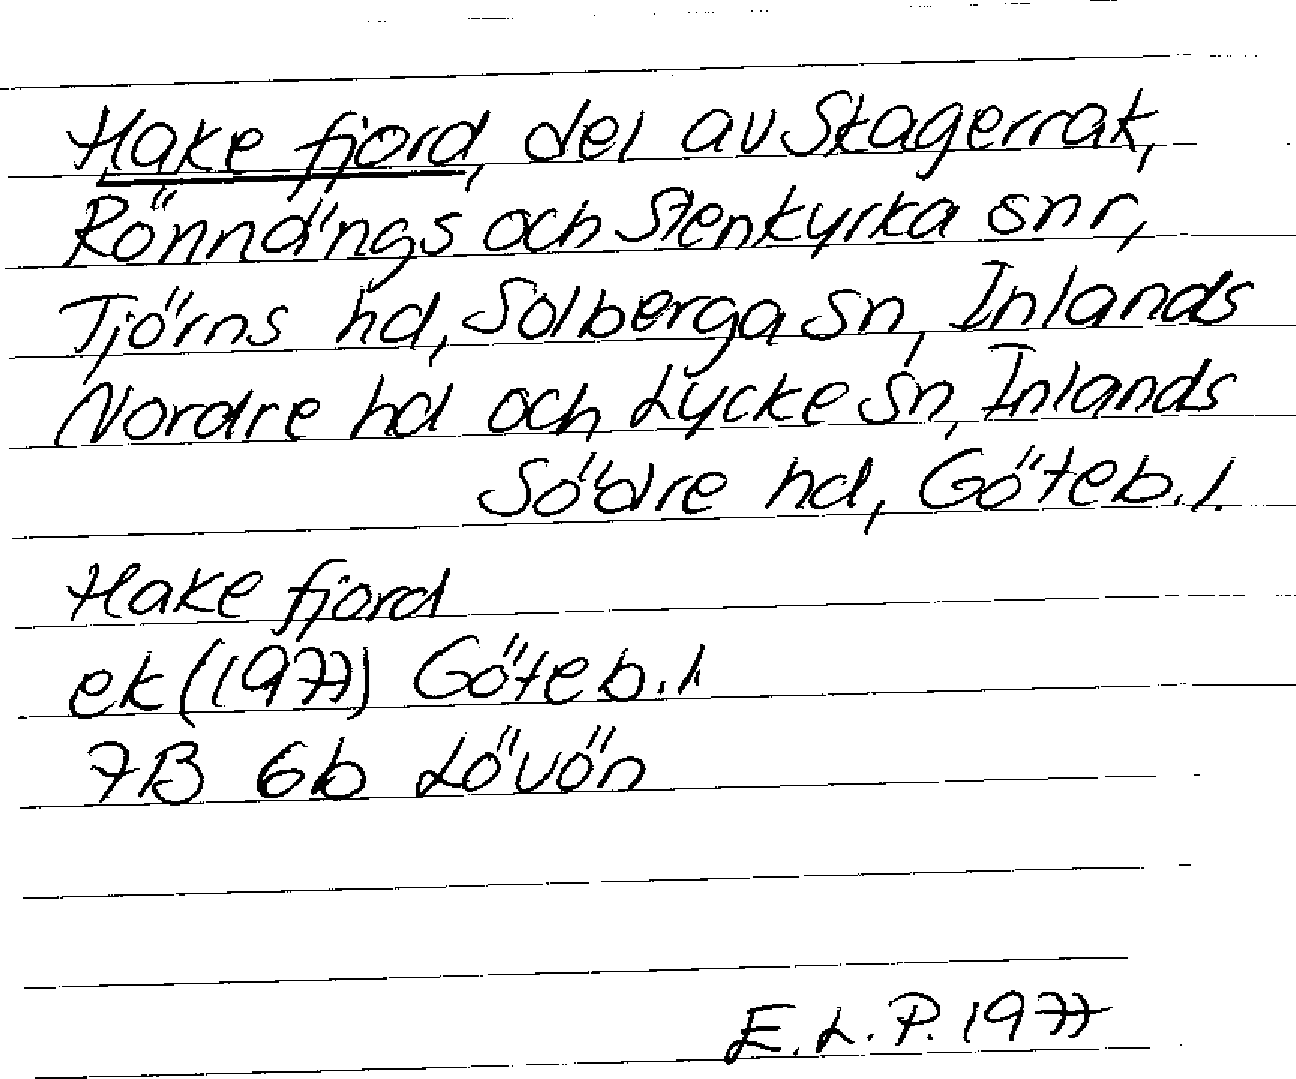 Hake fjord, del av Skagerrak,
Rönnängs och Stenkyrka snr,
Tjörns hd, Solberga sn, Inlands
Nordre hd och Lycke sn, Inlands
Södre hd, Göteb. l.
Hake fjord
ek (1977) Göteb. l.
7B 6b Lövön
E. L. P. 1977